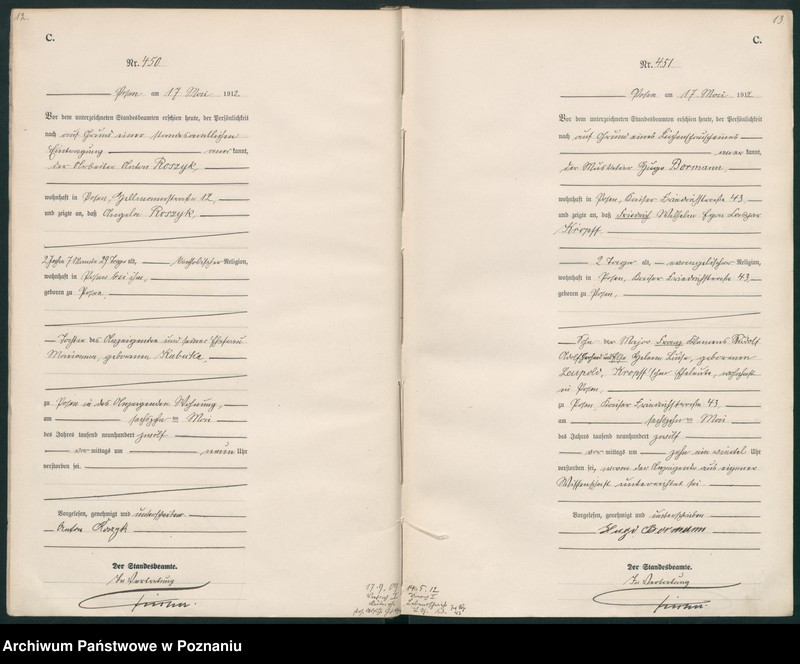 12.
C.
Nr. 450
Posen am 17 Mai 1912
Vor dem unterzeichneten Standesbeamten erschien heute, der Persönlichkeit
nach auf Grund einer standesamtlichen
Eintragung kannt,
der Arbeiter Anton Roszyk,
wohnhaft in Posen, 12,
und zeigte an, daß Angela Roszyk,
2 Jahre 7 Monate 29 Tage alt, katholischer Religion,
wohnhaft in Posen bei ihm,
geboren zu Posen,
Tochter des Anzeigenden und seiner Ehefrau
Marianna, geborenen
zu Posen in des Anzeigenden Wohnung,
am sechzehnten Mai
des Jahres tausend neunhundert zwölf
vor mittags um neun Uhr
verstorben sei.
Vorgelesen, genehmigt und unterschrieben
Anton Roszyk
Der Standesbeamte.
In Vertretung
13
C.
Nr. 451
Posen am 17 Mai 1912
Vor dem unterzeichneten Standesbeamten erschien heute, der Persönlichkeit
nach auf Grund eines
kannt,
der Musketier Hugo Bormann,
wohnhaft in Posen, Kaiser Friedrichstraße 43,
und zeigte an, daß Friedrich Wilhelm Egon
Kropff
2 Tage alt, evangelischer Religion,
wohnhaft in Posen, Kaiser Friedrichstraße 43,
geboren zu Posen,
Sohn der Major Franz Klemens Rudolf
Adolf und Else Helene Luise, geborenen
Leopold, Kropff'schen Eheleute, wohnhaft
in Posen,
zu Posen, Kaiser Friedrichstraße 43
am sechzehnten Mai
des Jahres tausend neunhundert zwölf
vor mittags um zehn ein viertel Uhr
verstorben sei, wovon der Anzeigende aus eigener
Wissenschaft unterrichtet sei
Vorgelesen, genehmigt und unterschrieben
Hugo Bormann
Der Standesbeamte.
In Vertretung
Archiwum Państwowe w Poznaniu